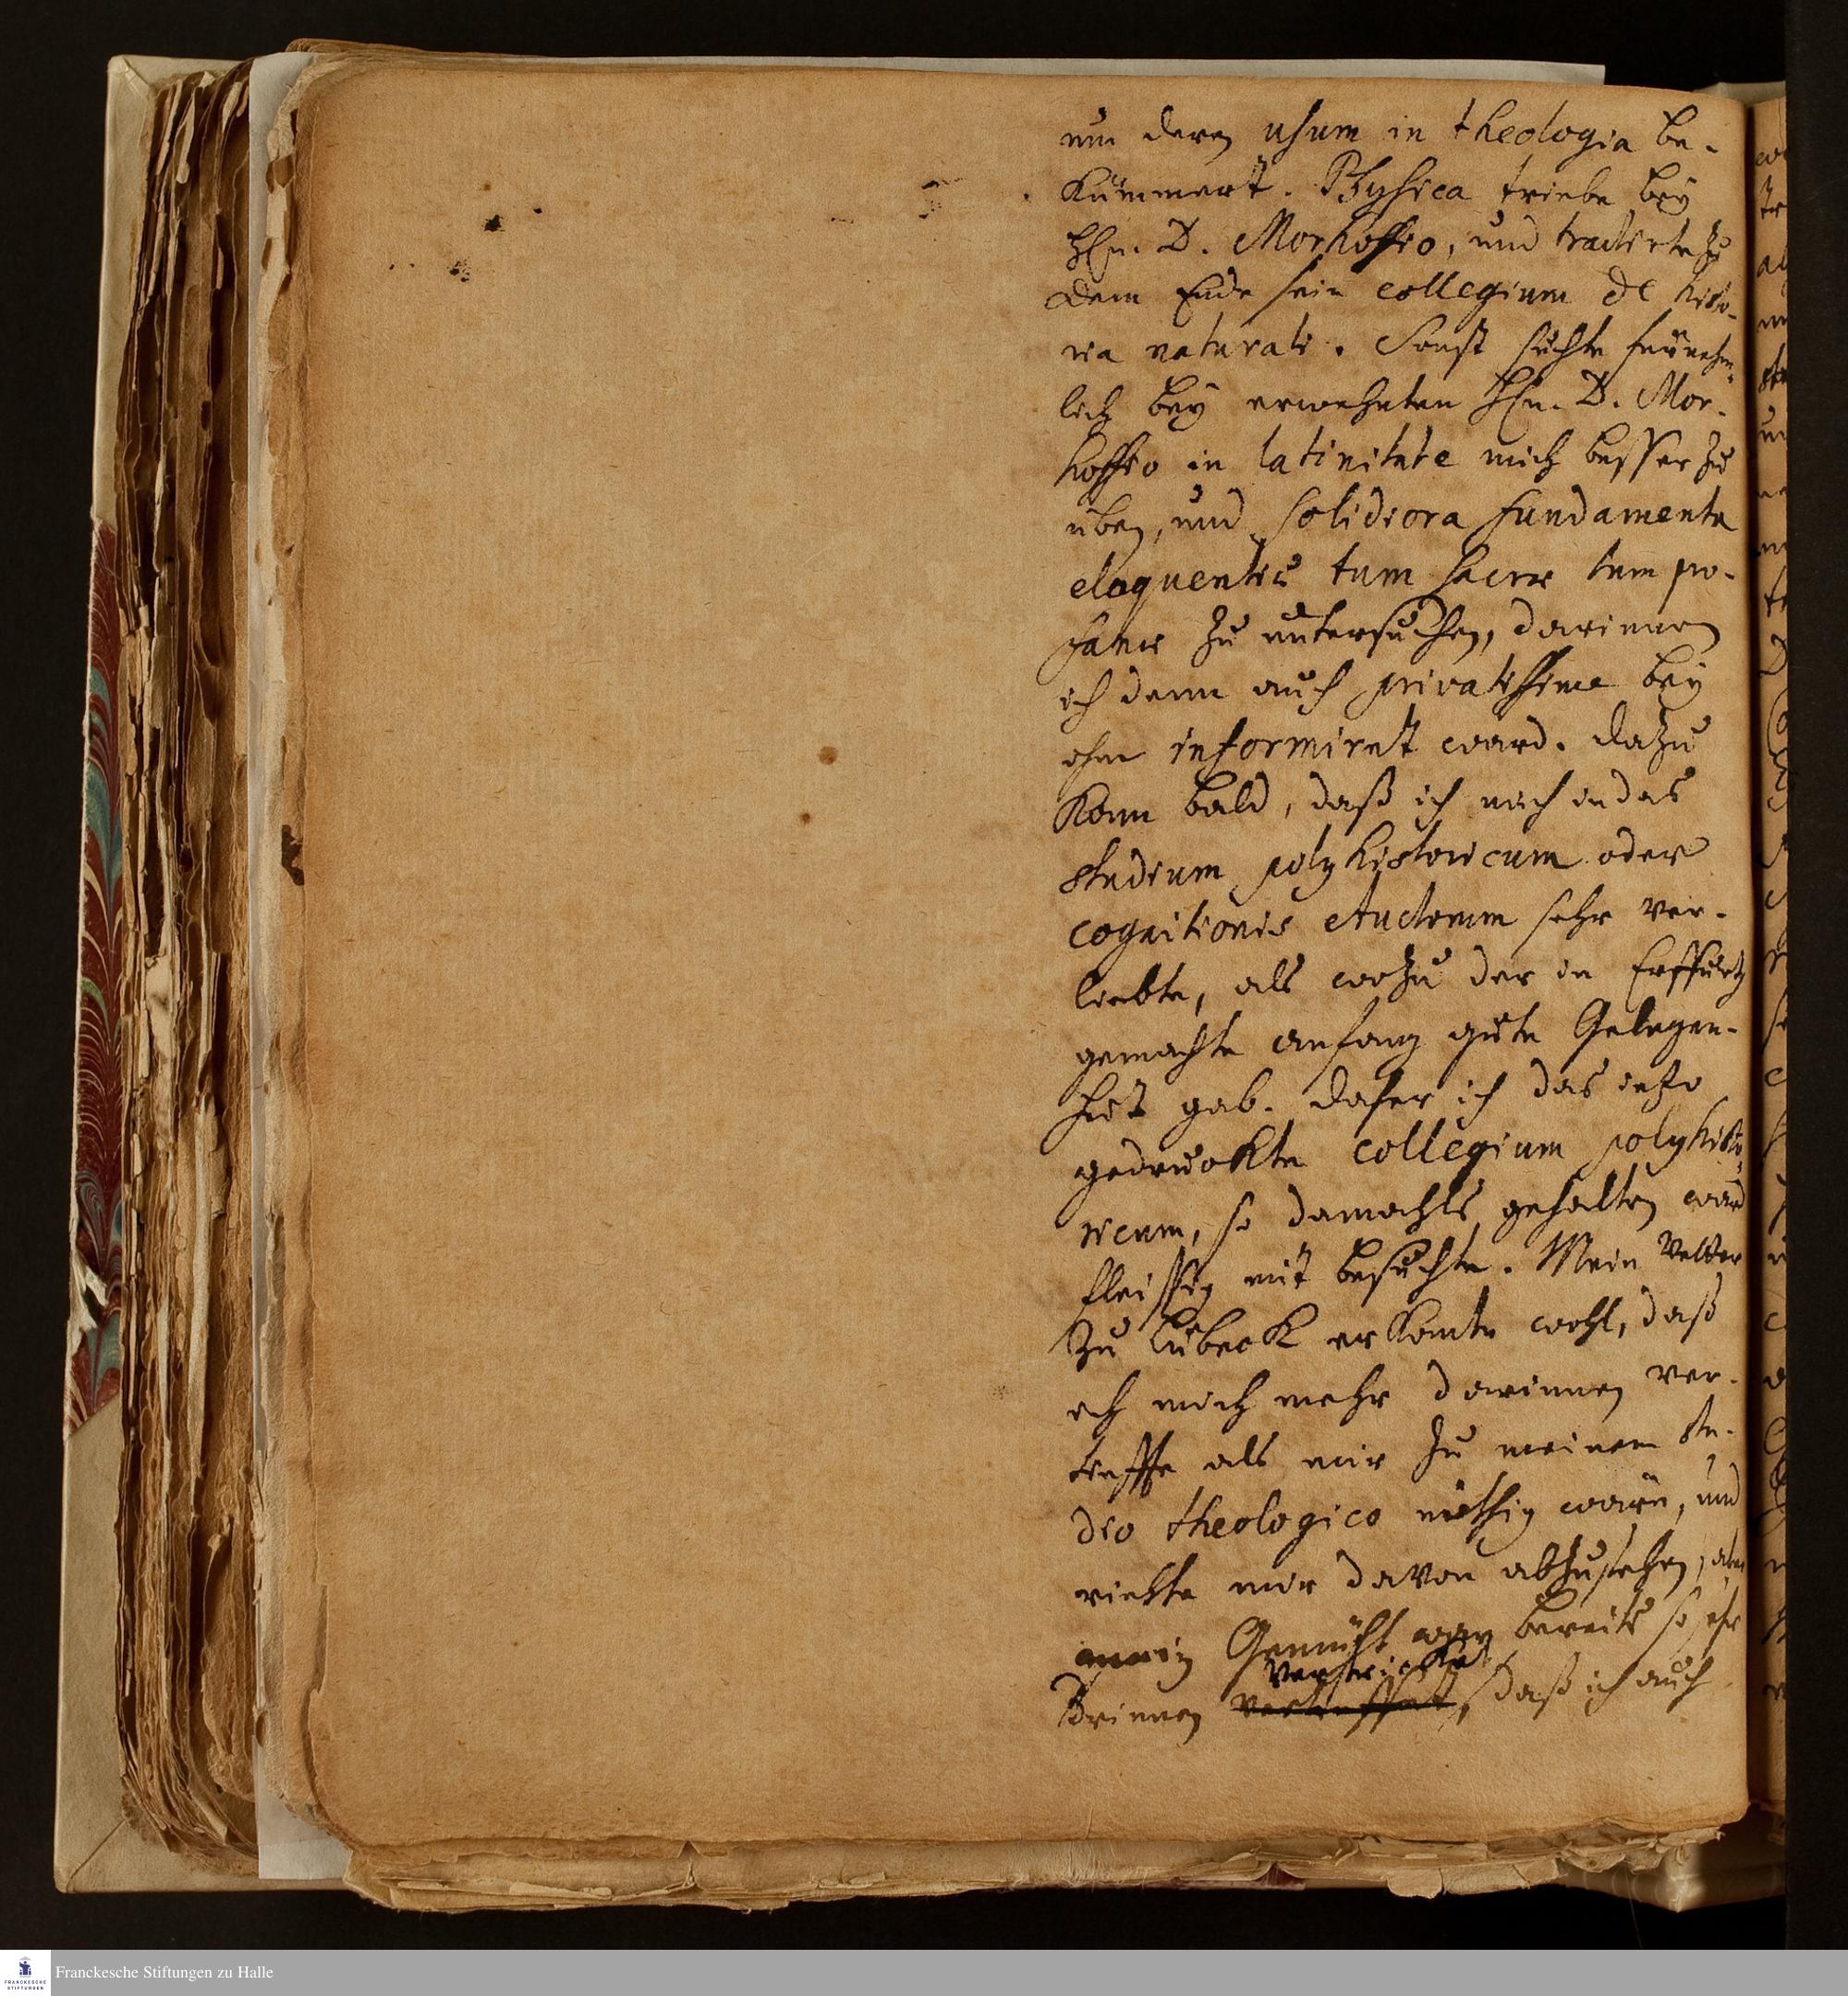 um deren usum in theologia be-
kümmert. Physica triebe bey
Hn. D. Morhoffio, und tractirte zu
dem Ende sein collegium de histo-
ria naturali. Sonst suchte fürnehm-
lich bey erwehnten Hn. D. Mor-
hoffio in latinitate mich besser zu
üben, und solidiora fundamenta
eloquentiæ tum sacræ tum pro-
fanæ zu untersuchen, darinnen
ich denn auch privatissime bey
ihm informiret ward. Dazu
kam bald, daß ich mich in das
studium polyhistoricum oder
cognitionis Auctorum sehr ver-
liebte, als wozu der in Erffurth
gemachte anfang gute Gelegen-
heit gab. Daher ich das ietzo
gedruckte collegium polyhisto-
ricum, so damahls gehalten ward
fleissig mit besuchte. Mein Vetter
zu Lübeck erkante wohl, daß
ich mich mehr darinnen ver-
tieffte als mir zu meinem stu-
dio theologico nöthig wäre, und
riethe mir davon abzustehen, aber
mein Gemüht war bereits so sehr
verstricket
drinnen vertieffet, daß ich auch
Franckesche Stiftungen zu Halle
FRANCKESCHE
STIFTUNGEN